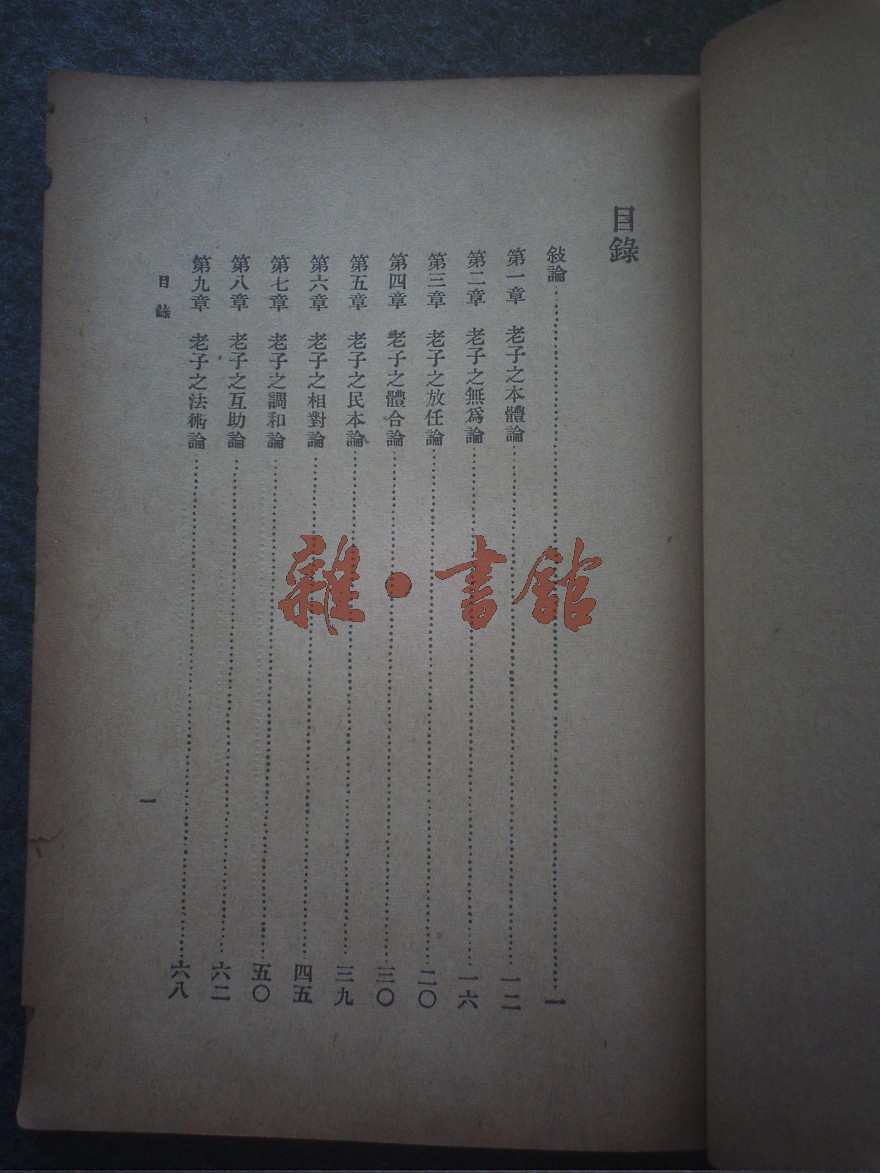 目錄
敍論……一
第一章 老子之本體論……一二
第二章 老子之無爲論……一六
第三章 老子之放任論……二〇
第四章 老子之體合論……三〇
第五章 老子之民本論……三九
第六章 老子之相對論……四五
第七章 老子之調和論……五〇
第八章 老子之互助論……六二
第九章 老子之法術論……六八
目錄
一
雜·書館